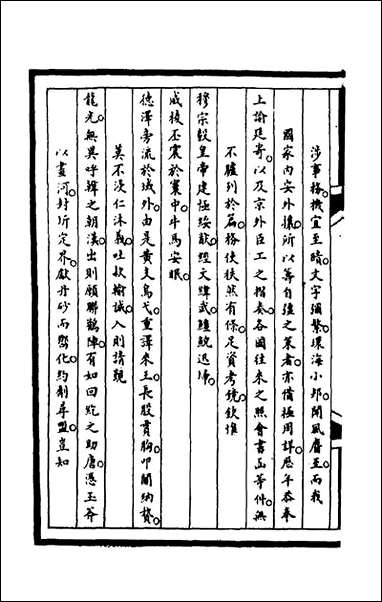 涉事務機宜至暗文字彌繁環海小邦聞風麕至而我
國家內安外攘所以籌自強之策者亦備極周詳歷年恭奉
上諭廷寄以及京外臣工之摺奏各國往來之照會書函等件無
不臚列於篇務使秩然有條足資考鏡欽惟
穆宗毅皇帝建極綏猷經文緯武鯨鯢迅埽
咸稜丕震於寰中牛馬安眠
德澤旁流於域外由是黃支烏弋重譯來王長股貫胸叩關納贄
莫不浸仁沐義吐欵輸誠入則請覲
龍光無異呼韓之朝漢出則願聯鸛陣有如回紇之助唐憑玉斧
以畫河封圻定界獻丹砂而嚮化約劑尋盟豈知